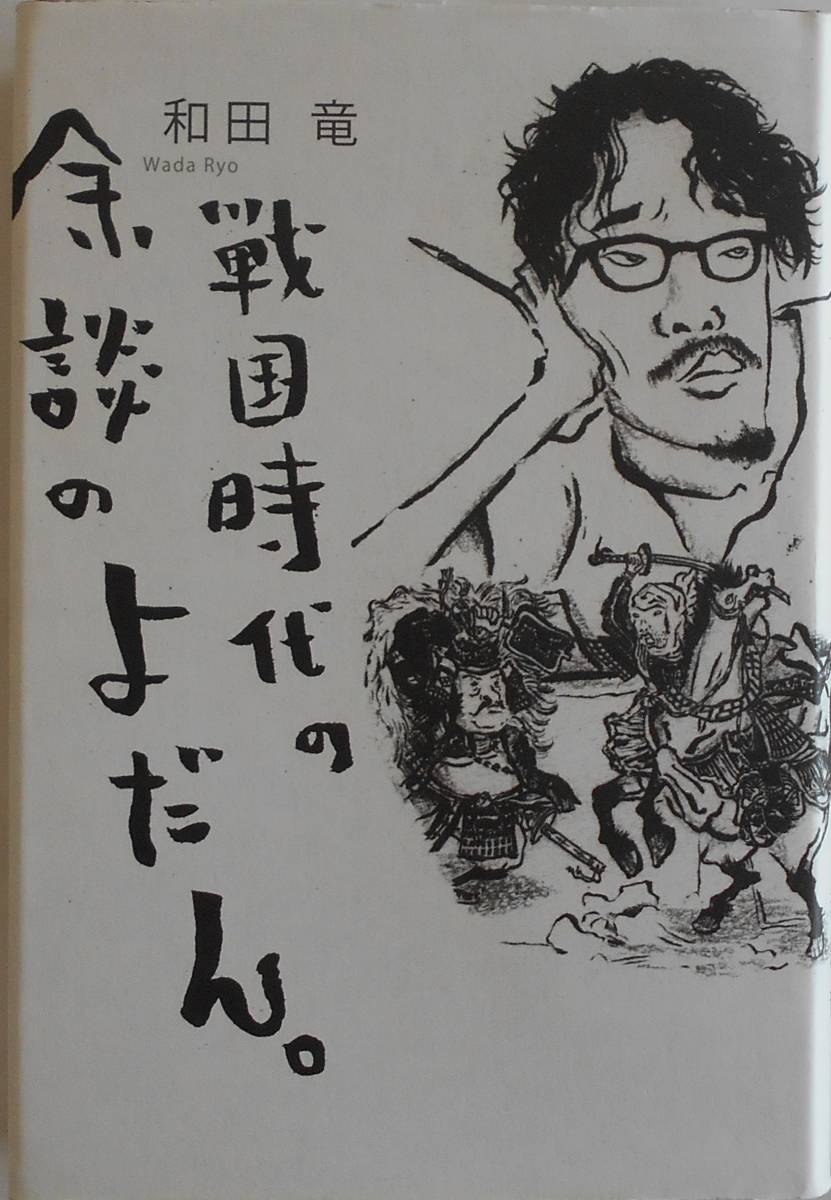 和田 竜
Wada Ryo
戦国時代の
余談のよだん。